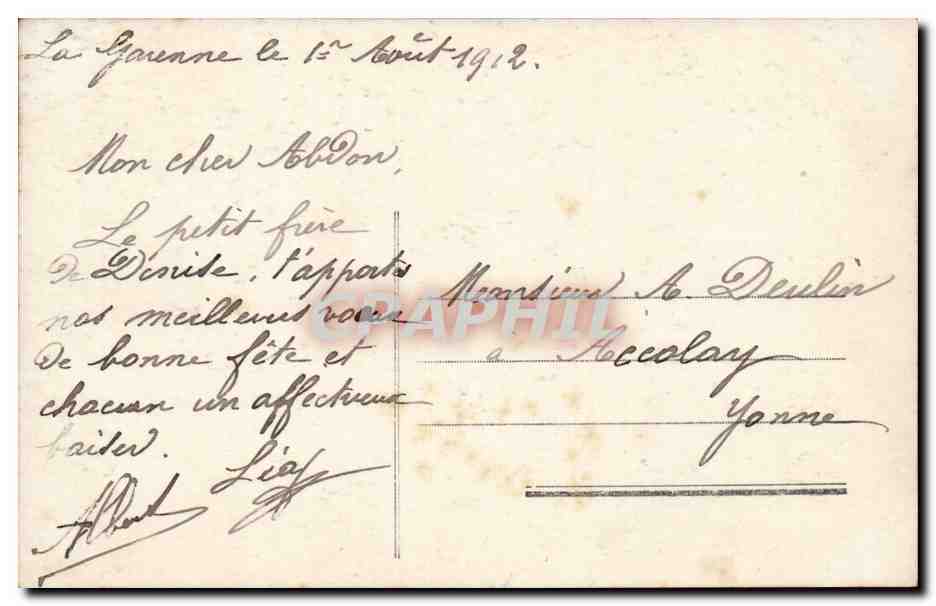 La Garenne le 1er Août 1912.
Mon cher Abdon,
Le petit frère
de Denise, t'apporte
nos meilleurs voeux
de bonne fête et
chacun un affectueux
baiser.
Léa
Albert
Monsieur A. Deulin
a Accolay
Yonne
CPAPHIL